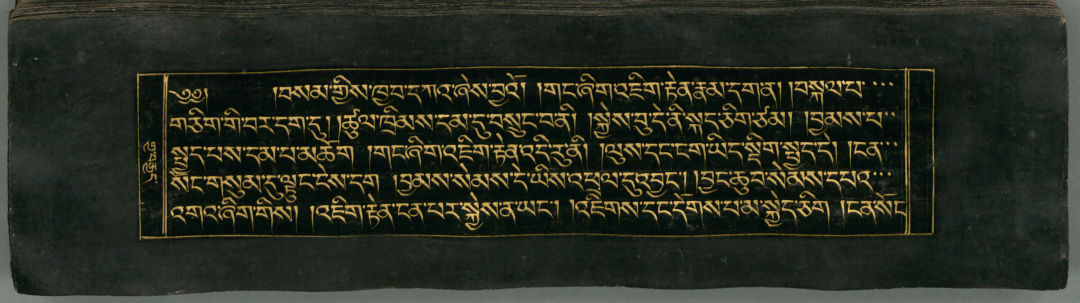 ༄༅། །བསམ་གྱིས་ཁྱབ་དཀའ་ཞེས་བྱའོ། །གང་ཞིག་འཇིག་རྟེན་རྣམ་དག་ན། །བསྐལ་པ་
གཅིག་གི་བར་དག་ཏུ། །ཚུལ་ཁྲིམས་དམ་དུ་བསྲུང་བནི། །སྐྱེས་བུ་དེ་ནི་སྐད་ཅིག་ཙམ། །བྱམས་པ་
སྤྱད་པས་དམ་པ་མཆོག །གང་ཞིག་འཇིག་རྟེན་འདི་རུ་ནི། །ལུས་དང་ངག་ཡིད་སྡིག་སྤྱད་དེ། །ངན་
སོང་གསུམ་དུ་ལྟུང་ངེས་དག །བྱམས་སེམས་དེ་ཡིས་འཕྲལ་དུ་འབྱང༌། །བྱང་ཆུབ་སེམས་དཔའ་
འགའ་ཞིག་གིས། །འཇིག་རྟེན་ངན་པར་སྐྱེས་ན་ཡང༌། །འཇིགས་དང་དོགས་པ་མ་སྐྱེད་ཅིག །ངན་སོང་